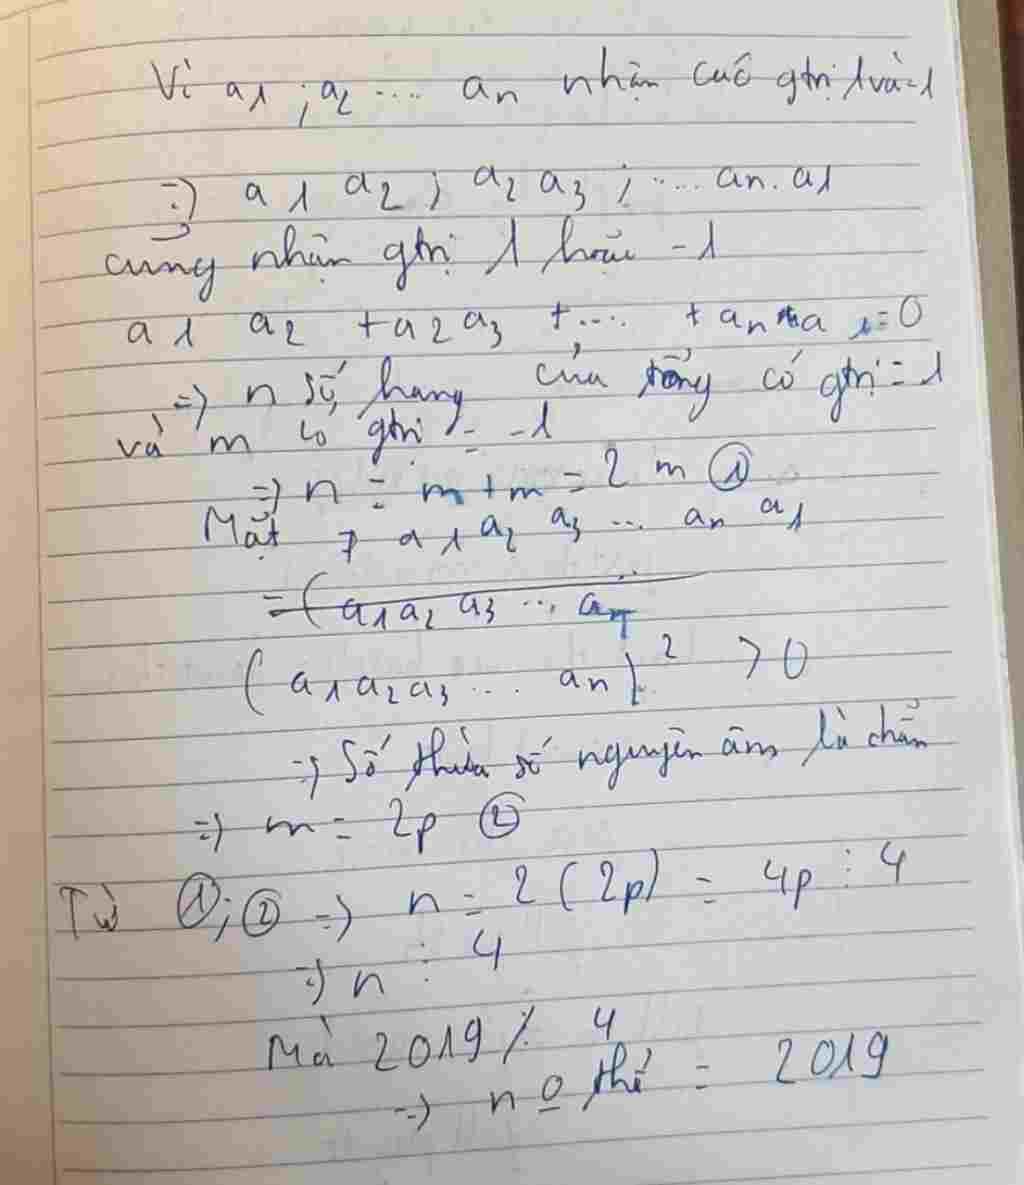 Vì a1 ; a2 .... an nhận các gtrị 1 và -1
=> a1 a2 ; a2 a3 ; .... an. a1
cũng nhận gtrị 1 hoặc -1
a1 a2 + a2 a3 + .... + an a1 = 0
=> n số hạng của tổng có gtrị = 1
và m có gtrị = -1
=> n = m + m = 2m ①
Mặt ≠ a1 a2 a3 ... an a1
= ( a1 a2 a3 ... an
( a1 a2 a3 ... an )² > 0
=> Số thừa số nguyên âm là chẵn
=> m = 2p ②
Từ ①; ② => n = 2 (2p) = 4p ⋮ 4
=> n ⋮ 4
Mà 2019 ⋮̸ 4
=> n o thể = 2019